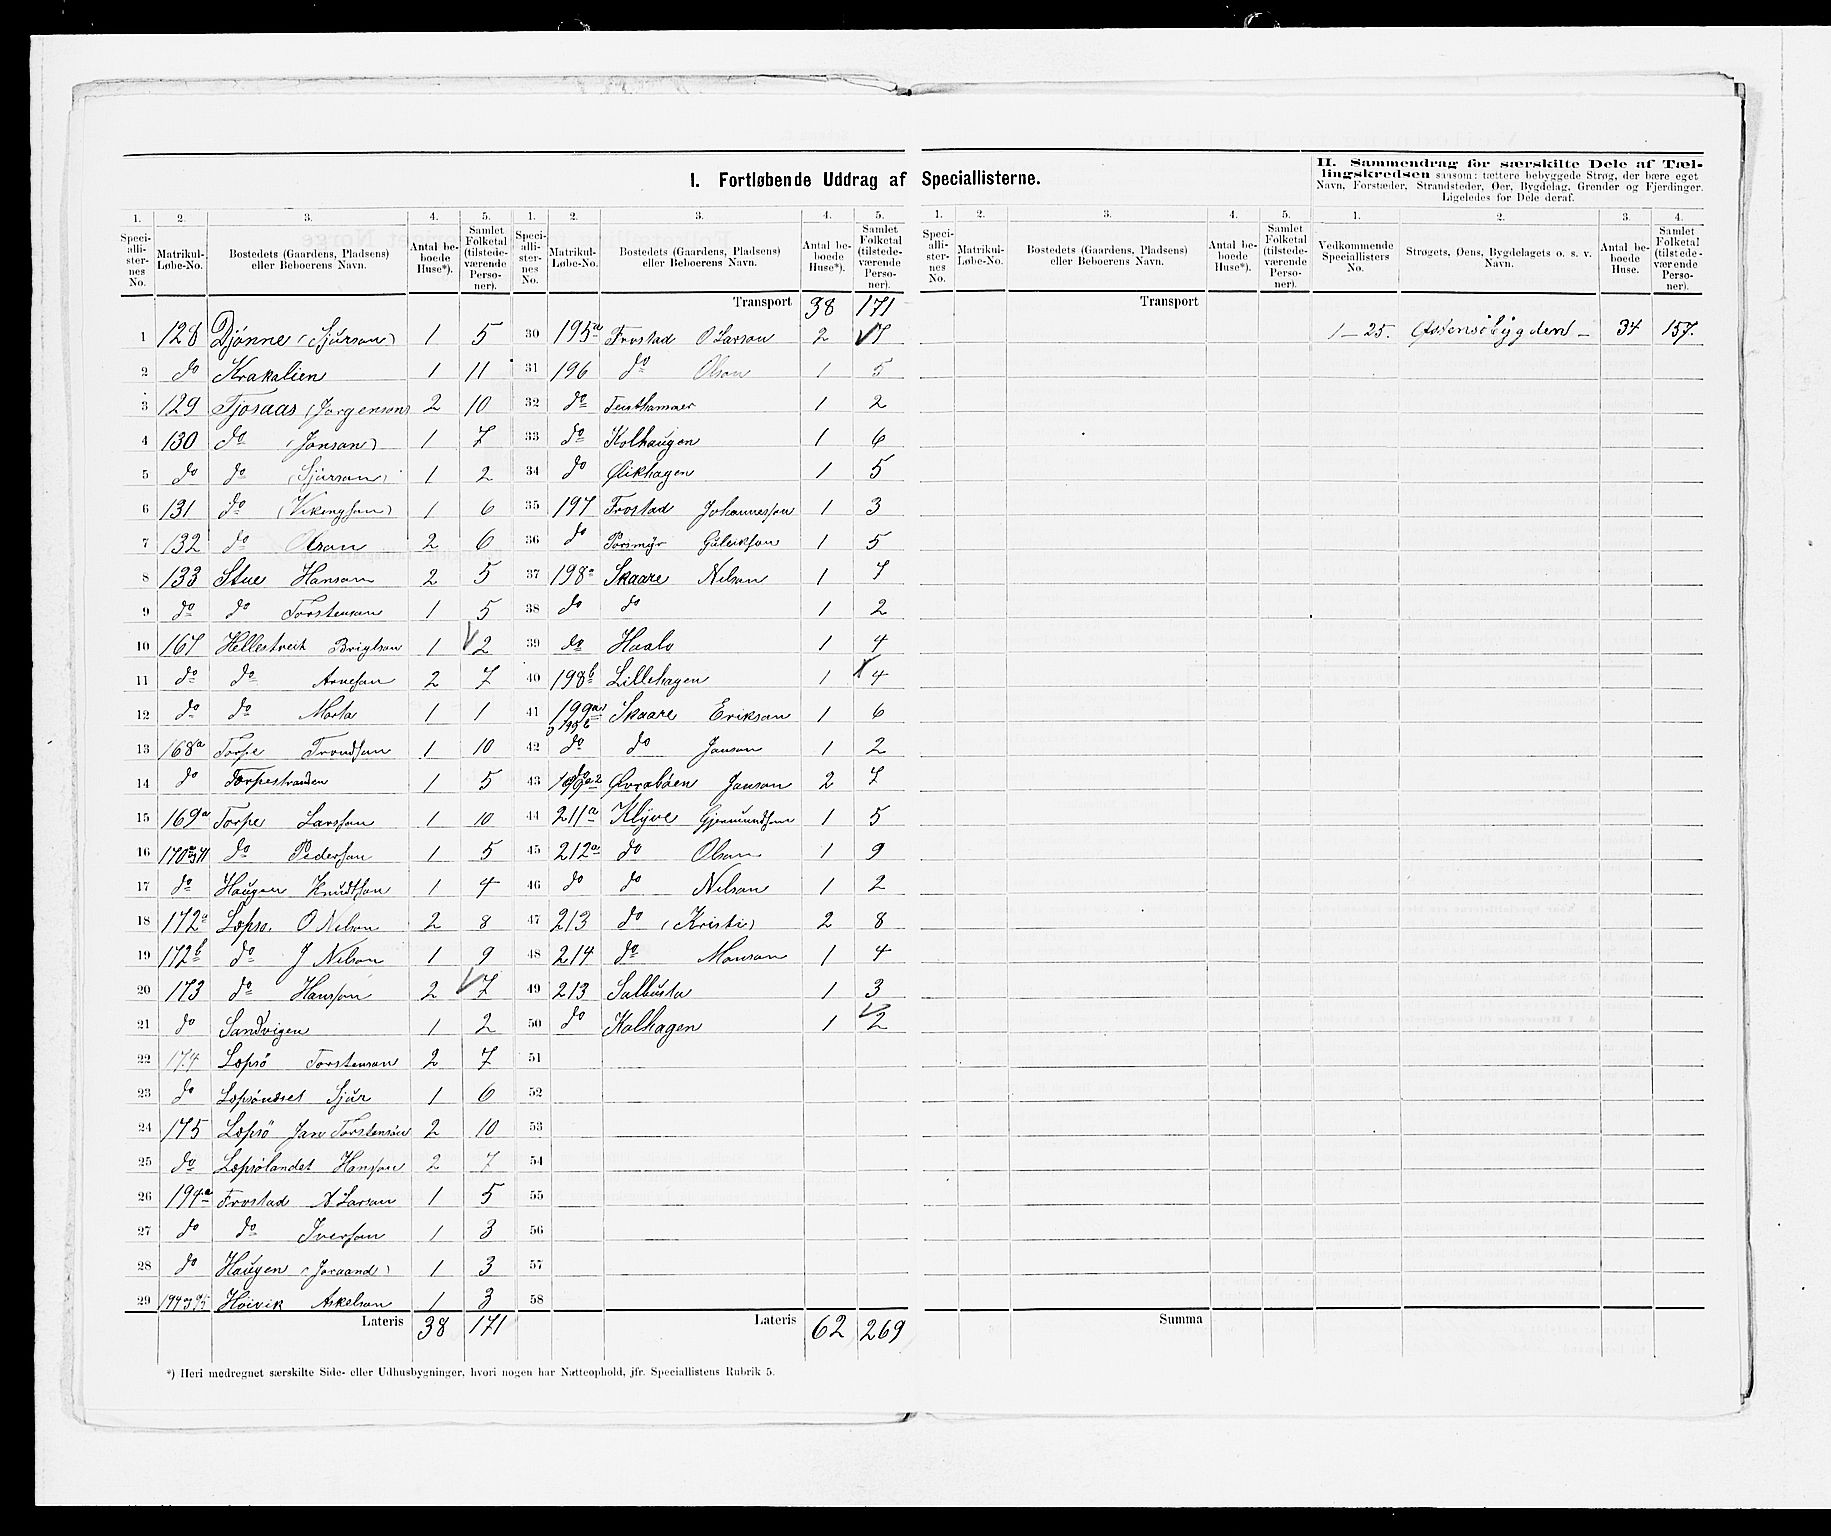 I. Fortløbende Uddrag af Speciallisterne.
II. Sammendrag for særskilte Dele af Tællingskredsen saasom: tættere bebyggede Strøg, der bære eget
Navn, Forstæder, Strandsteder, Øer, Bygdelag, Grender og Fjerdinger.
Ligeledes for Dele deraf.
1. 2. 3. 4. 5. 1. 2. 3. 4. 5. 1. 2. 3. 4. 5. 1. 2. 3. 4.
Speciallisternes No. Matrikul-Løbe-No. Bostedets (Gaardens, Pladsens) eller Beboerens Navn. Antal beboede Huse*). Samlet Folketal (tilstedeværende Personer).
Speciallisternes No. Matrikul-Løbe-No. Bostedets (Gaardens, Pladsens) eller Beboerens Navn. Antal beboede Huse*). Samlet Folketal (tilstedeværende Personer).
Speciallisternes No. Matrikul-Løbe-No. Bostedets (Gaardens, Pladsens) eller Beboerens Navn. Antal beboede Huse*). Samlet Folketal (tilstedeværende Personer).
Vedkommende Speciallisters No. Strøgets, Øens, Bygdelagets o. s. v. Navn. Antal beboede Huse. Samlet Folketal (tilstedeværende Personer).
1 128 Djønne (Sjurson) 1 5
2 do Krakalien 1 11
3 129 Tjosaas (Jorgenson) 2 10
4 130 do (Jonson) 1 7
5 do do (Sjurson) 1 2
6 131 do (Vikingson) 1 6
7 132 do 2 6
8 133 Stue Hanson 2 5
9 do do Torstenson 1 5
10 167 Helletveit 1 2
11 do do Arneson 2 7
12 do do Marta 1 1
13 168a Torpe Trondson 1 10
14 do Torpestranden 1 5
15 169a Torpe Larsson 1 10
16 do Pederson 1 5
17 do Haugen Knudtson 1 4
18 172a Lopso. O Nelson 2 8
19 172b do J Nelson 1 9
20 173 do Hansson 2 7
21 do Sandvigen 1 2
22 174 Lopsö Torstenson 2 7
23 do Sjur 1 6
24 175 Lopsö Jan Torstenson 2 10
25 do Lopsölandet Hansson 2 7
26 194a Frostad A Larson 1 5
27 do do Iverson 1 3
28 do Haugen (Joraand) 1 3
29 Høivik Askelson 1 3
Lateris 38 171
Transport 38 171
30 195a Frostad O Larson 2 7
31 196 do Olson 1 5
32 do 1 2
33 do Kolhaugen 1 6
34 do Øikhagen 1 5
35 197 Frostad Johannesson 1 3
36 do Porsmyr Guleikson 1 5
37 198a Skaare Nelson 1 7
38 do do 1 2
39 do Haalo 1 4
40 198b Lillehagen 1 4
41 199a Skaare Erikson 1 6
42 do do Janson 1 2
43 Øvrabøen Janson 2 7
44 211a Klyve Gjermundson 1 5
45 212a do Olson 1 9
46 do do Nelson 1 2
47 213 do (Kristi) 2 8
48 214 do Monson 1 4
49 213 Salbusta 1 3
50 do Kalhagen 1 2
51
52
53
54
55
56
57
58
Lateris 62 269
Transport
Summa
1–25. Østensöbygden – 34 157.
*) Heri medregnet særskilte Side- eller Udhusbygninger, hvori nogen har Natteophold, jfr. Speciallistens Rubrik 5.